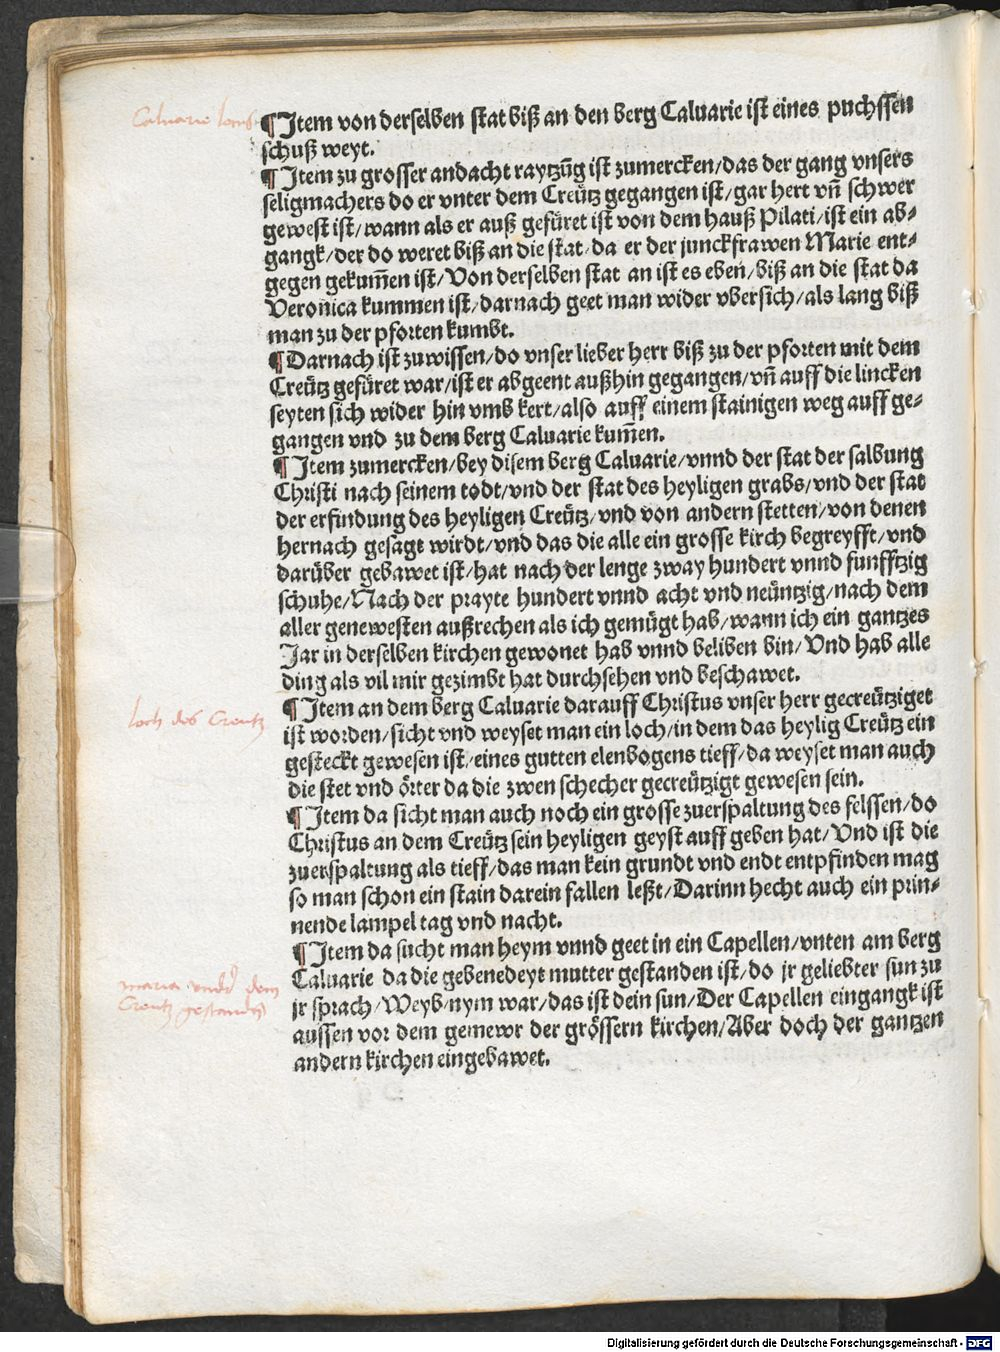 Caluarie locus
¶ Item von derselben stat biß an den berg Caluarie ist eines puchssen
schuß weyt.
¶ Item zu grosser andacht raytzũg ist zumercken/das der gang vnsers
seligmachers do er vnter dem Creütz gegangen ist/gar hert vñ schwer
gewest ist/wann als er auß gefüret ist von dem hauß Pilati/ist ein ab⸗
gangk/der do weret biß an die stat/da er der junckfrawen Marie ent⸗
gegen gekum̃en ist/Von derselben stat an ist es eben/biß an die stat da
Veronica kummen ist/darnach geet man wider vbersich/als lang biß
man zu der pforten kumbt.
¶ Darnach ist zuwissen/do vnser lieber herr biß zu der pforten mit dem
Creütz gefüret war/ist er abgeent außhin gegangen/vñ auff die lincken
seyten sich wider hin vmb kert/also auff einem stainigen weg auff ge⸗
gangen vnd zu dem berg Caluarie kum̃en.
¶ Item zumercken/bey disem berg Caluarie/vnnd der stat der salbung
Christi nach seinem todt/vnd der stat des heyligen grabs/vnd der stat
der erfindung des heyligen Creütz/vnd von andern stetten/von denen
hernach gesagt wirdt/vnd das die alle ein grosse kirch begreyfft/vnd
darüber gebawet ist/hat nach der lenge zway hundert vnnd funfftzig
schuhe/Nach der prayte hundert vnnd acht vnd neüntzig/nach dem
aller genewesten außrechen als ich gemügt hab/wann ich ein gantzes
Jar in derselben kirchen gewonet hab vnnd beliben bin/Vnd hab alle
ding als vil mir gezimbt hat durchsehen vnd beschawet.
loch des Creutz
¶ Item an dem berg Caluarie darauff Christus vnser herr gecreütziget
ist worden/sicht vnd weyset man ein loch/in dem das heylig Creütz ein
gesteckt gewesen ist/eines gutten elenbogens tieff/da weyset man auch
die stet vnd örter da die zwen schecher gecreützigt gewesen sein.
¶ Item da sicht man auch noch ein grosse zuerspaltung des felssen/do
Christus an dem Creütz sein heyligen geyst auff geben hat/Vnd ist die
zuerspaltung als tieff/das man kein grundt vnd endt entpfinden mag
so man schon ein stain darein fallen leßt/Darinn hecht auch ein prin⸗
nende lampel tag vnd nacht.
¶ Item da sucht man heym vnnd geet in ein Capellen/vnten am berg
Caluarie da die gebenedeyt mutter gestanden ist/do jr geliebter sun zu
maria vnder dem
Creutz gestanden
jr sprach/Weyb/nym war/das ist dein sun/Der Capellen eingangk ist
aussen vor dem gemewr der grössern kirchen/Aber doch der gantzen
andern kirchen eingebawet.
Digitalisierung gefördert durch die Deutsche Forschungsgemeinschaft - DFG